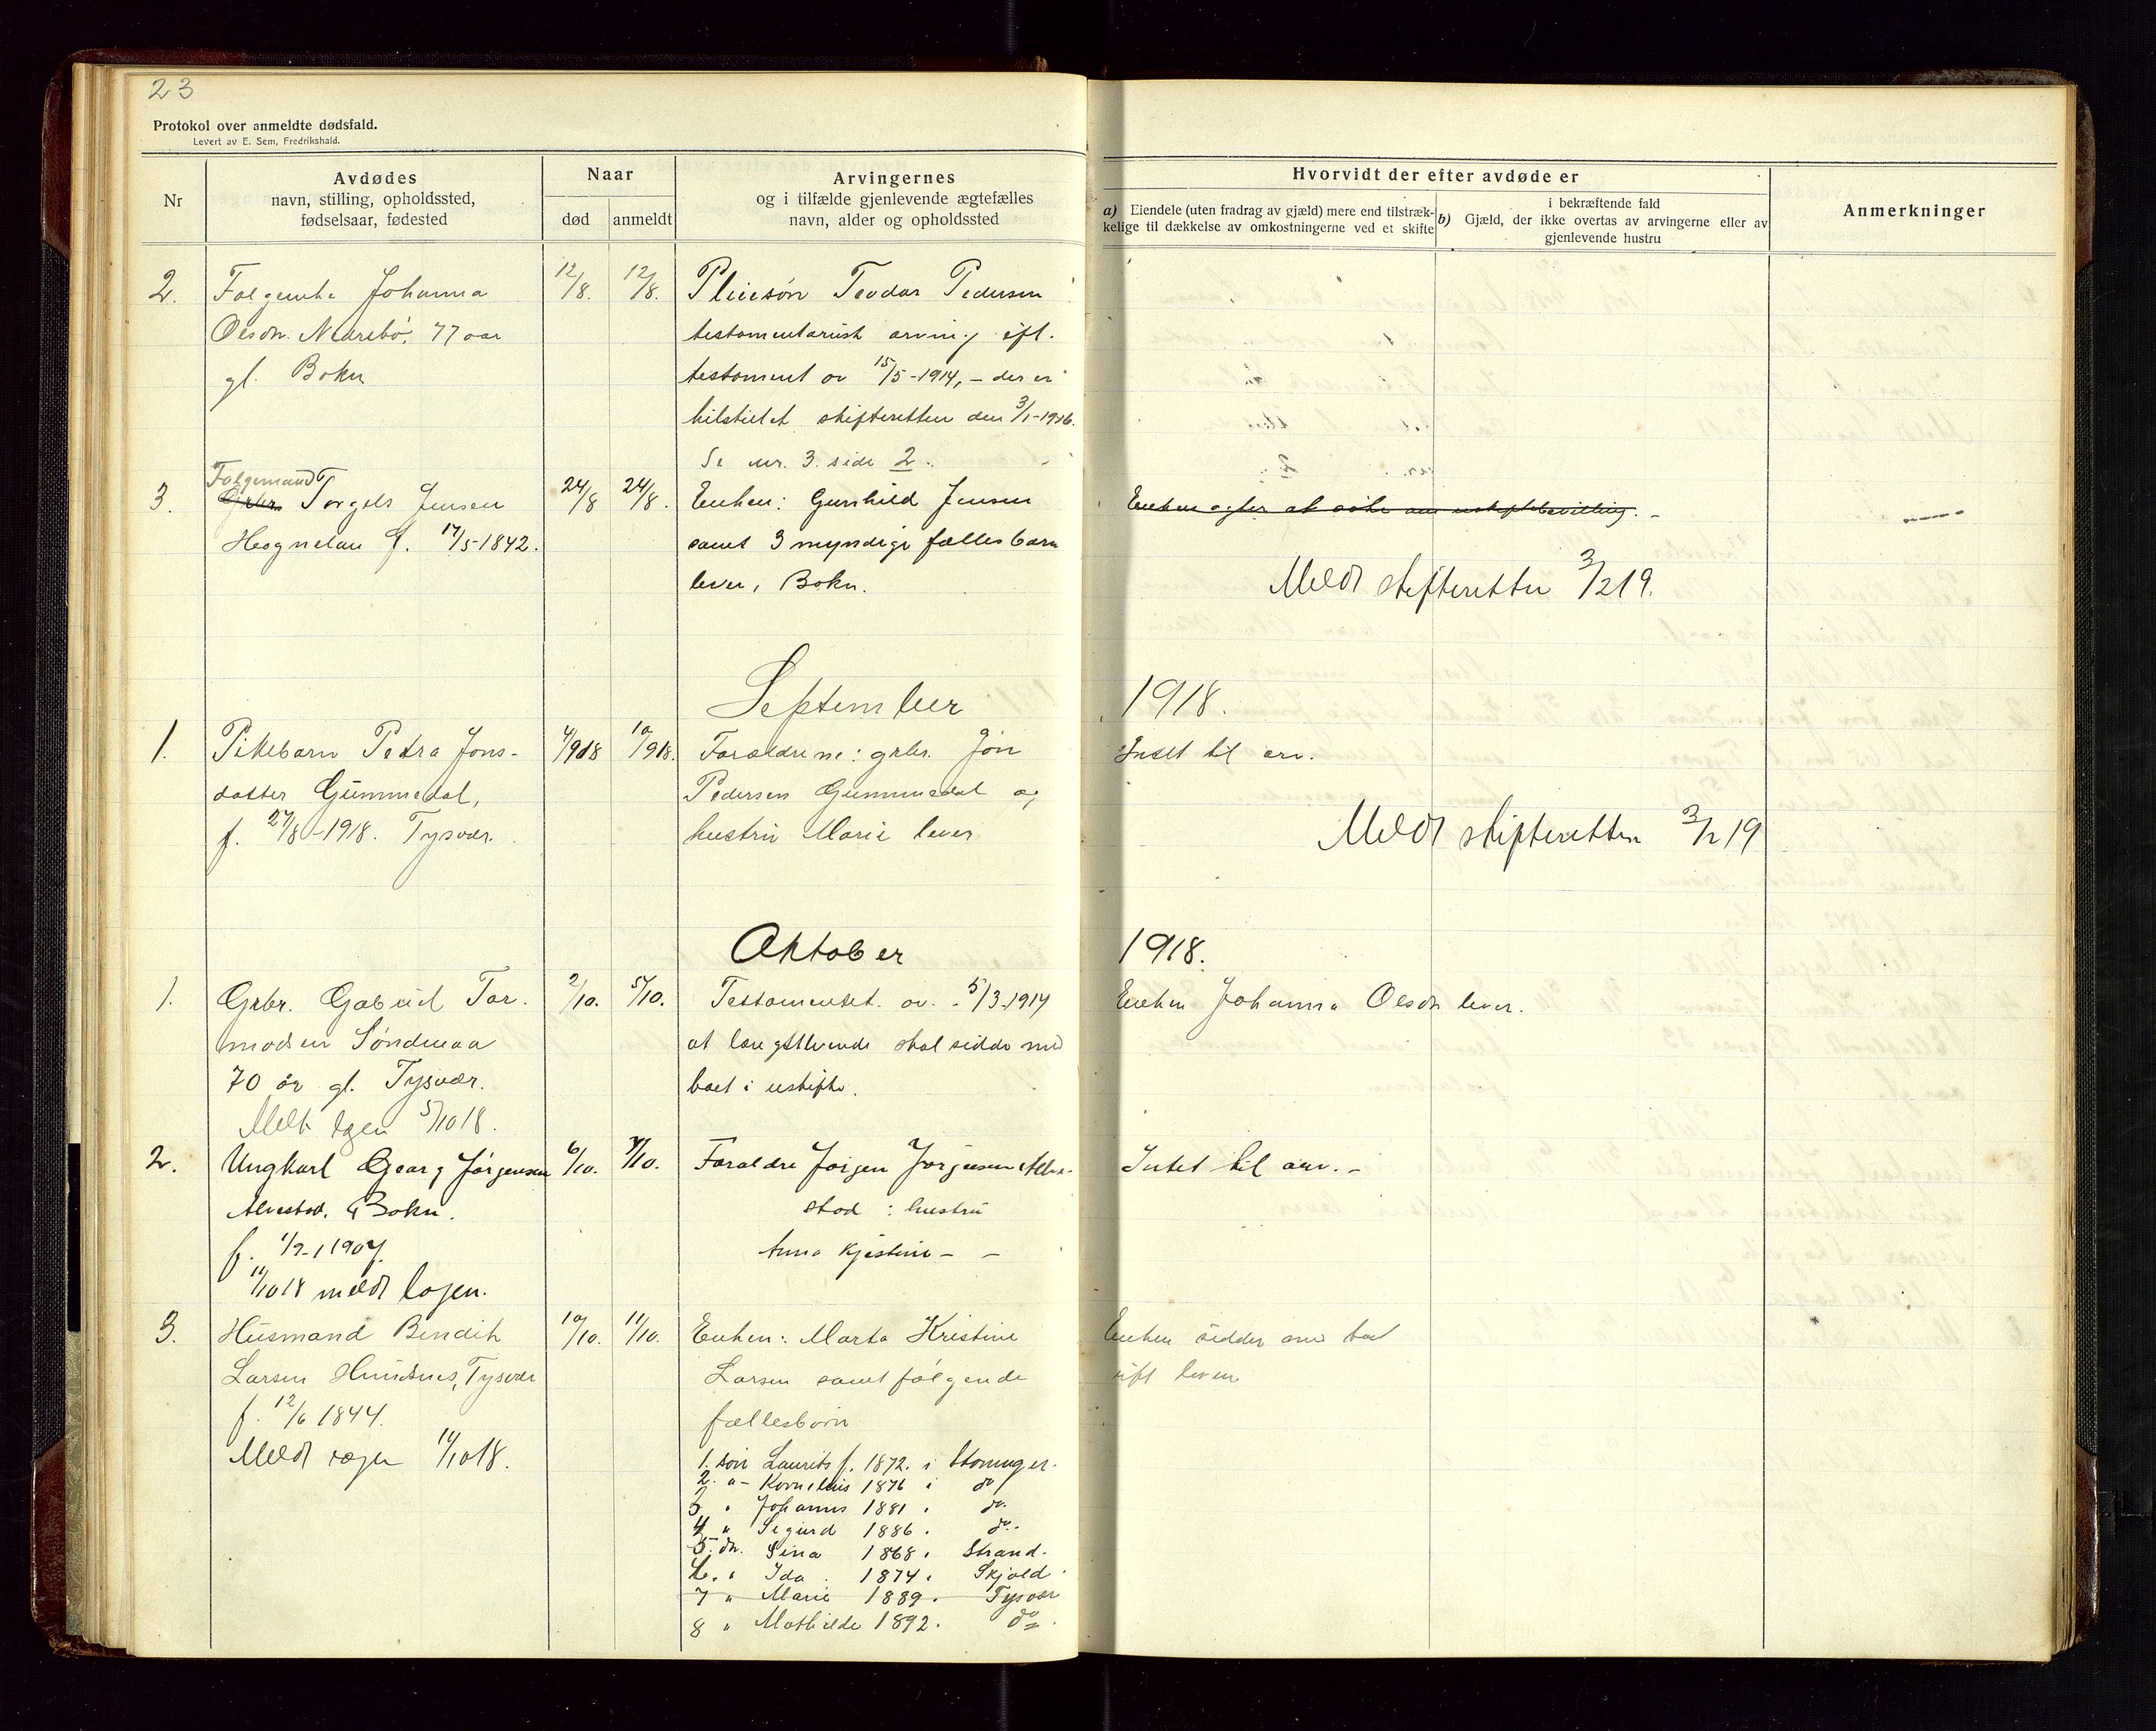 23
Protokol over anmeldte dødsfald.
Levert av E. Sem, Fredrikshald.
Nr
Avdødes
navn, stilling, opholdssted,
fødselsaar, fødested
Naar
død
anmeldt
Arvingernes
og i tilfælde gjenlevende ægtefælles
navn, alder og opholdssted
Hvorvidt der efter avdøde er
a) Eiendele (uten fradrag av gjæld) mere end tilstræk-
kelige til dækkelse av omkostningerne ved et skifte
i bekræftende fald
b) Gjæld, der ikke overtas av arvingerne eller av
gjenlevende hustru
Anmerkninger
2. Folgeenke Johanna 12/8. 12/8. Pleiesön Teodor Pedersen
Olsdtr. Nedrebö, 77 aar testamentarisk arving eft.
gl. Bokn testament av 15/5-1914, - der er
tilstillet skifteretten den 3/1-1916.
Se nr. 3. side 2.
Folgemand
3. Grbr. Torgels Jensen 24/8 24/8. Enken: Gunhild Jensen Enken agter at söke om uskiftebevilling. -
Hognelan f. 17/5-1842. samt 3 myndige fællesbarn
lever, Bokn. Meldt skifteretten 3/2 19.
September 1918.
1. Pikebarn Petra Jons- 4/918 10/918. Foraldrene: grbr. Jon Intet til arv.
datter Gümmedal, Pedersen Gümmedal og
f. 27/8-1918. Tysvær. hustru Marie lever Meldt skifteretten 3/2 19
Oktober 1918.
1. Grbr. Gabriel Tor- 2/10. 5/10. Testamentet av 5/3-1914 Enken Johanna Olsdtr lever.
modsen Söndenaa at længstlevende skal sidde med
70 år gl. Tysvær. boet i uskifte.
Meldt logen 5/10 18.
2. Ungkarl Georg Jörgensen 6/10. 7/10. Foraldre Jörgen Jörgensen Alve- Intet til arv. -
Alvestad. Bokn. stad : hustru
f. 1/9-1907. Anna Kjestine - -
11/10 18 meldt logen.
3. Husmand Bendik 10/10. 11/10. Enken: Marta Kristine Enken sidder om bod
Larsen Hundsnes, Tysvær Larsen samt fölgende
f. 12/6 1844. fællesbörn
Meldt 11/10 18.
1. sön Laurits f. 1872. i Stavanger.
2. " - Kornelius 1876 i do
3 " Johannes 1881 . do.
4 " Sigurd 1886 . do.
5. dtr. Sina 1868. Strand.
6. " Ida . 1874. Skjold.
7 " Marie 1889. Tysvær
8 " Mathilde 1892. do.